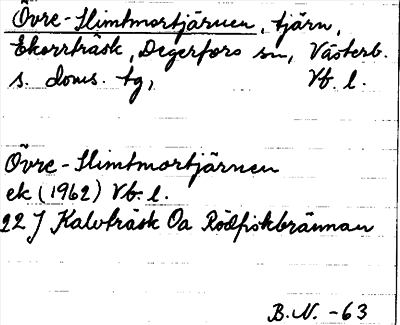 Övre-Slimtmortjärnen, tjärn,
Ekorrträsk, Degerfors sn, Västerb.
s. doms. tg, Vb. l.
Övre-Slimtmortjärnen
ek (1962) Vb. l.
22 J Kalvträsk 0a Rödfiskbrännan
B.N. -63